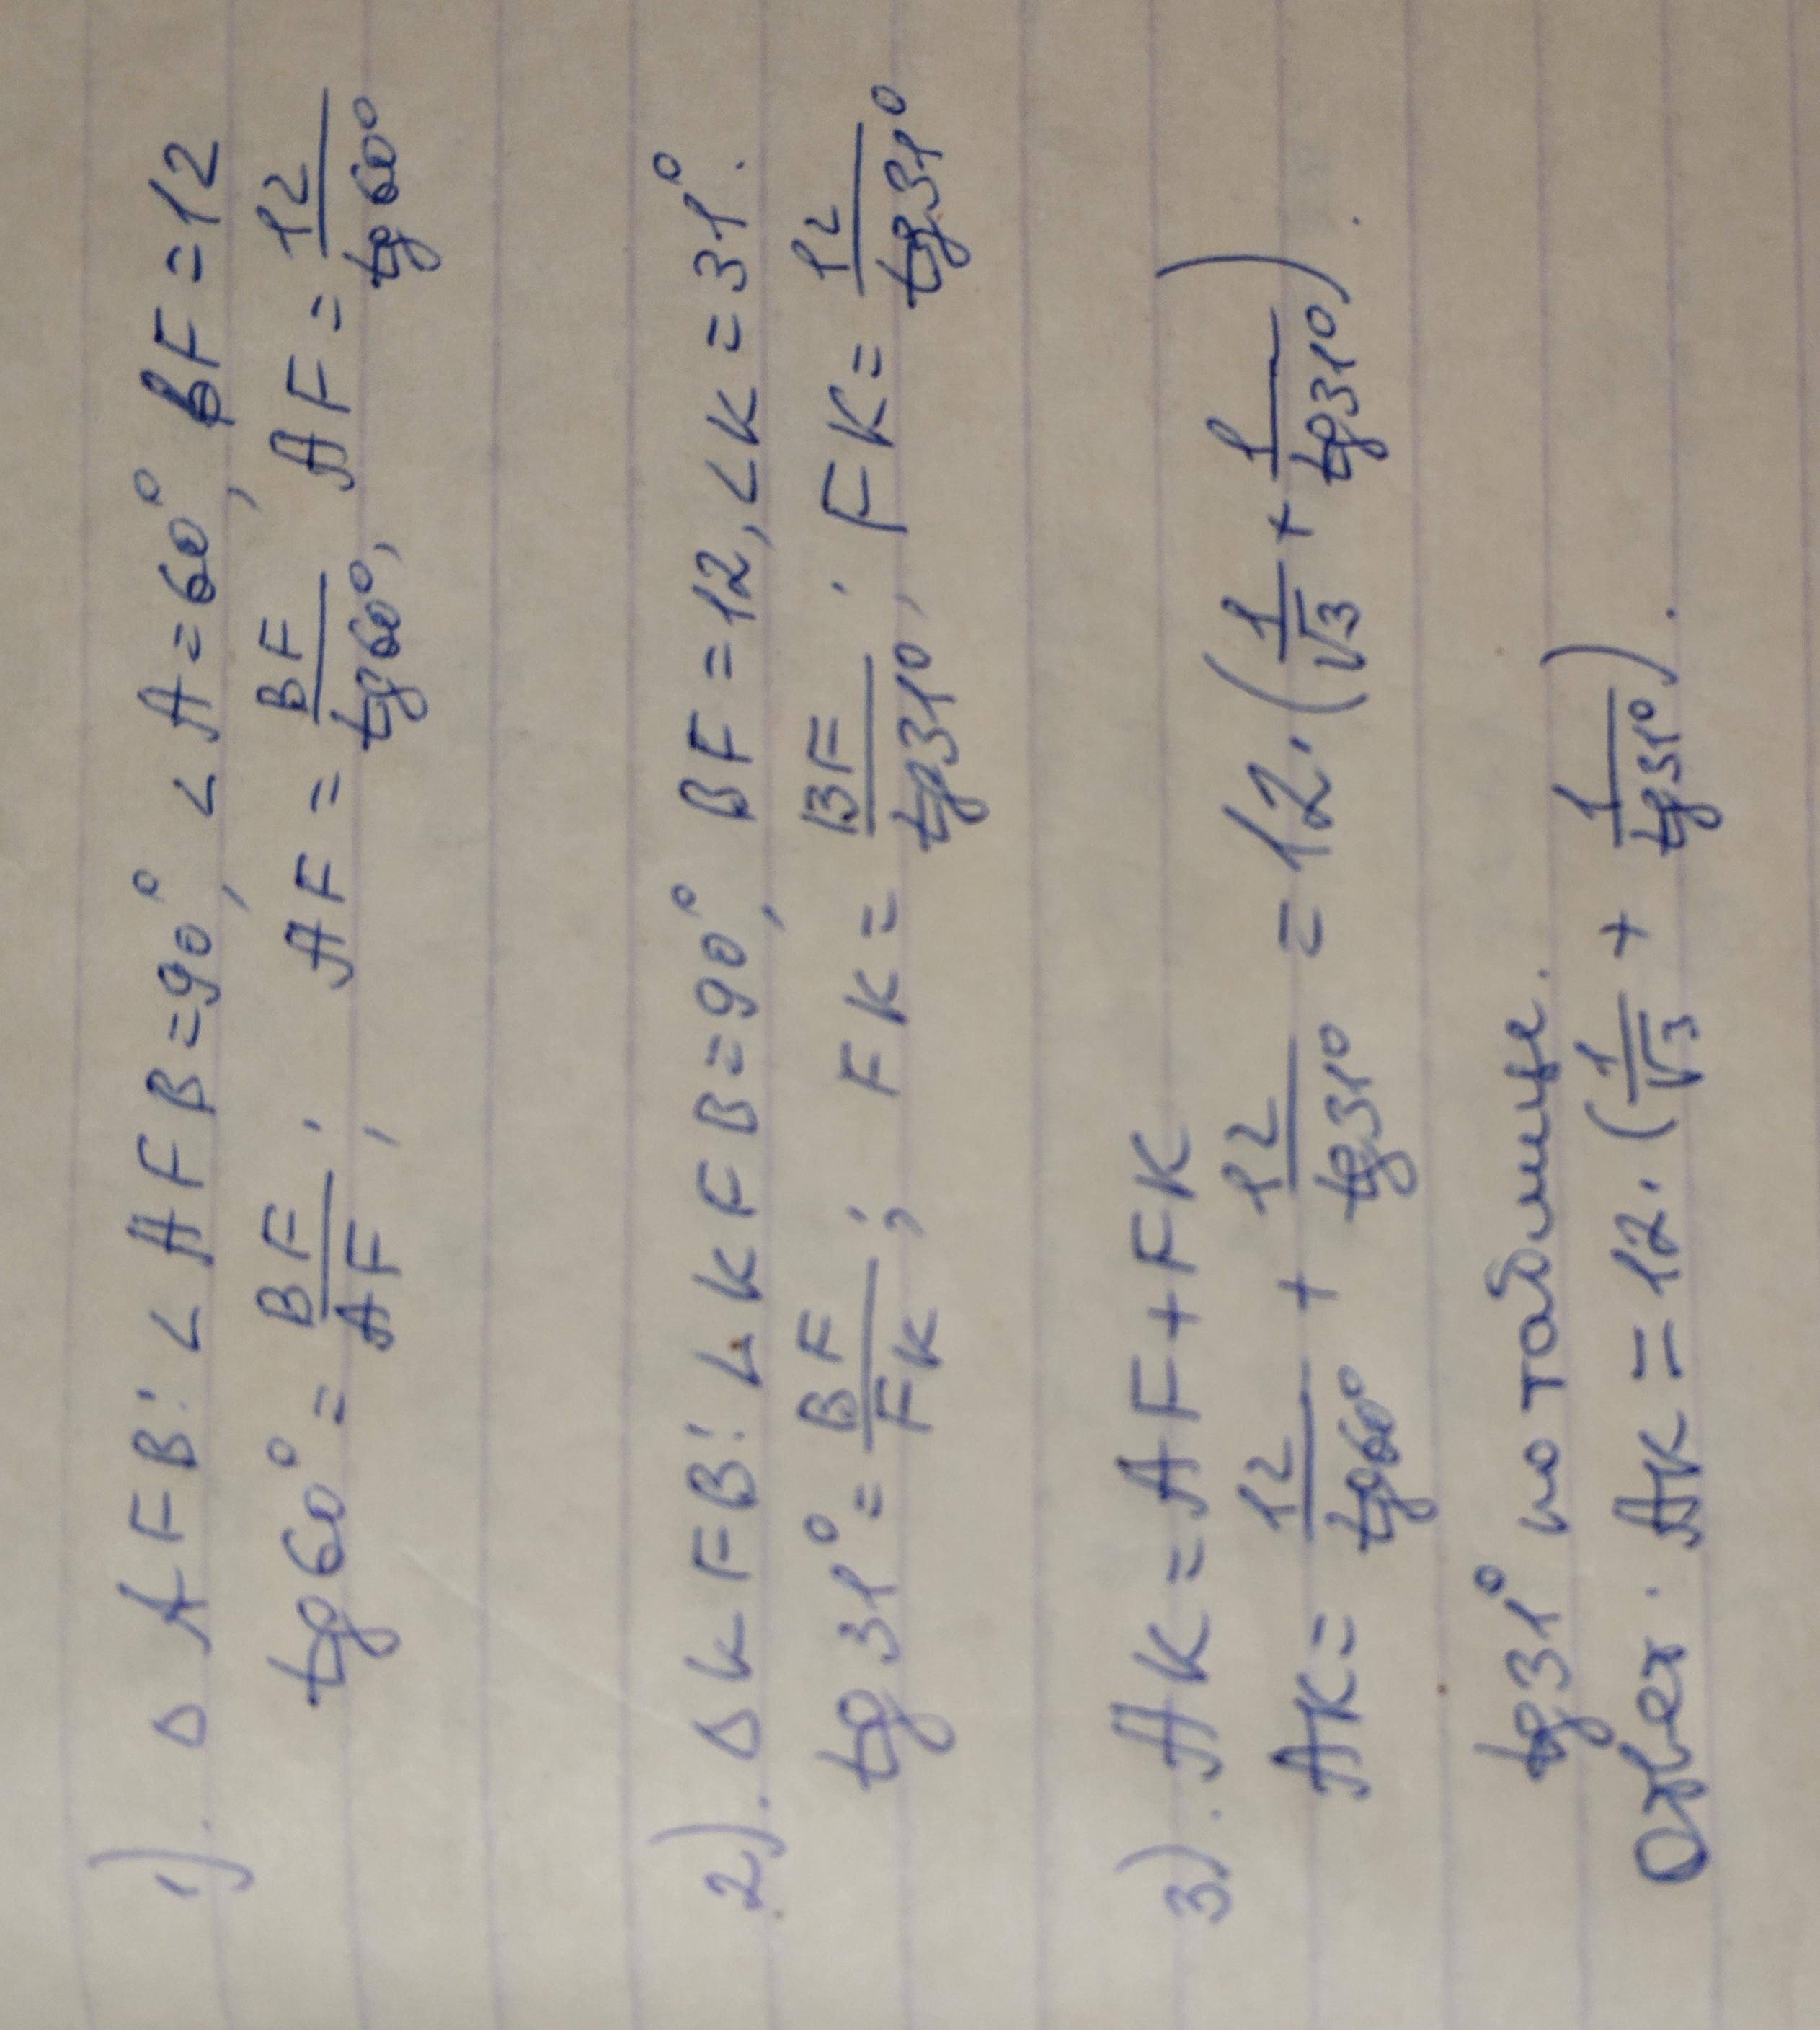 1). Δ AFB: ∠AFB=90°, ∠A=60°, BF=12
tg60° = BF/AF; AF = BF/tg60°, AF = 12/tg60°
2). Δ KFB: ∠KFB=90°, BF=12, ∠K=31°.
tg31° = BF/FK; FK = BF/tg31°; FK = 12/tg31°
3). AK = AF + FK
AK = 12/tg60° + 12/tg31° = 12·(1/√3 + 1/tg31°).
tg31° по таблице.
Ответ. AK = 12·(1/√3 + 1/tg31°).